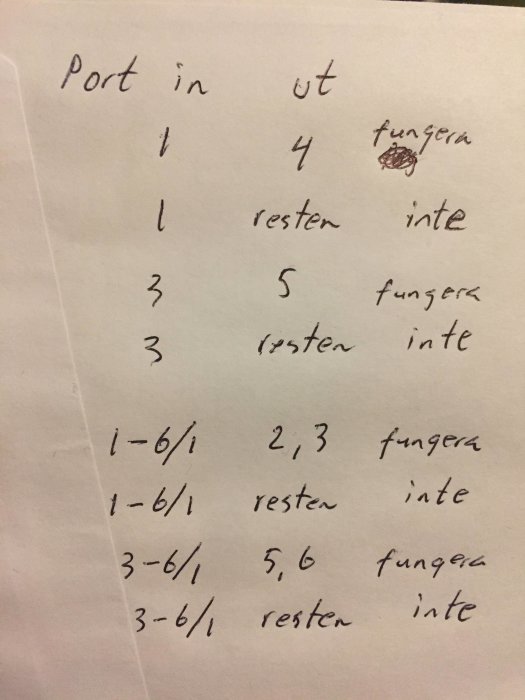 Port in ut
1 4 fungera
1 resten inte
3 5 fungera
3 resten inte
1-6/1 2,3 fungera
1-6/1 resten inte
3-6/1 5,6 fungera
3-6/1 resten inte